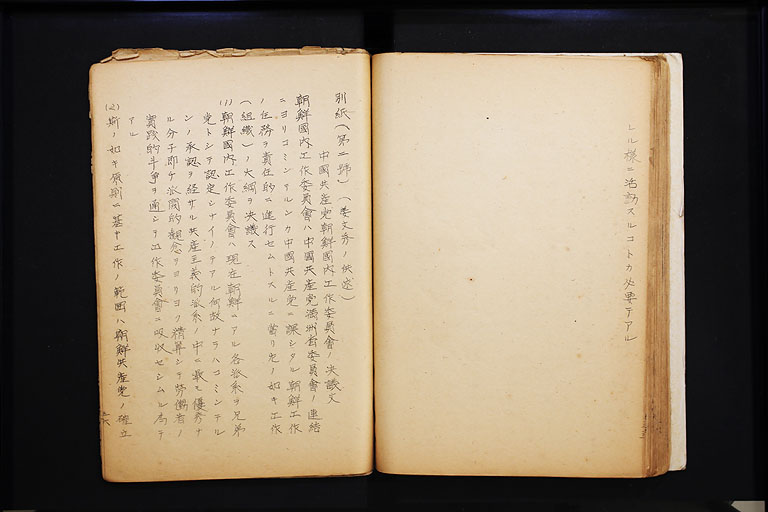 レル様ニ活動スルコトカ必要テアル
別紙(第二號)(姜文秀ノ供述)
中國共産党朝鮮國内工作委員會ノ決議文
朝鮮國内工作委員會ハ中國共産党満洲省委員會ノ連結
ニヨリコミンテルンカ中國共産党ニ課シタル朝鮮工作
ノ任務ヲ責任的ニ進行セムトスルニ當リ次ノ如キ工作
(組織)ノ大綱ヲ決議ス
(1)朝鮮國内工作委員會ハ現在朝鮮ニアル各派系ヲ兄弟
党トシテ認定シナイノテアル何故ナラハコミンテル
ンノ承認ヲ経サル共産主義的派系ノ中ニ最モ優秀ナ
ル分子即チ派閥的観念ヲヨリヨク精算シテ労働者ノ
實践的斗争ヲ通シテ工作委員會ニ吸收セシムル為テ
アル
(2)斯ノ如キ原則ニ基キ工作ノ範囲ハ朝鮮共産党ノ確立